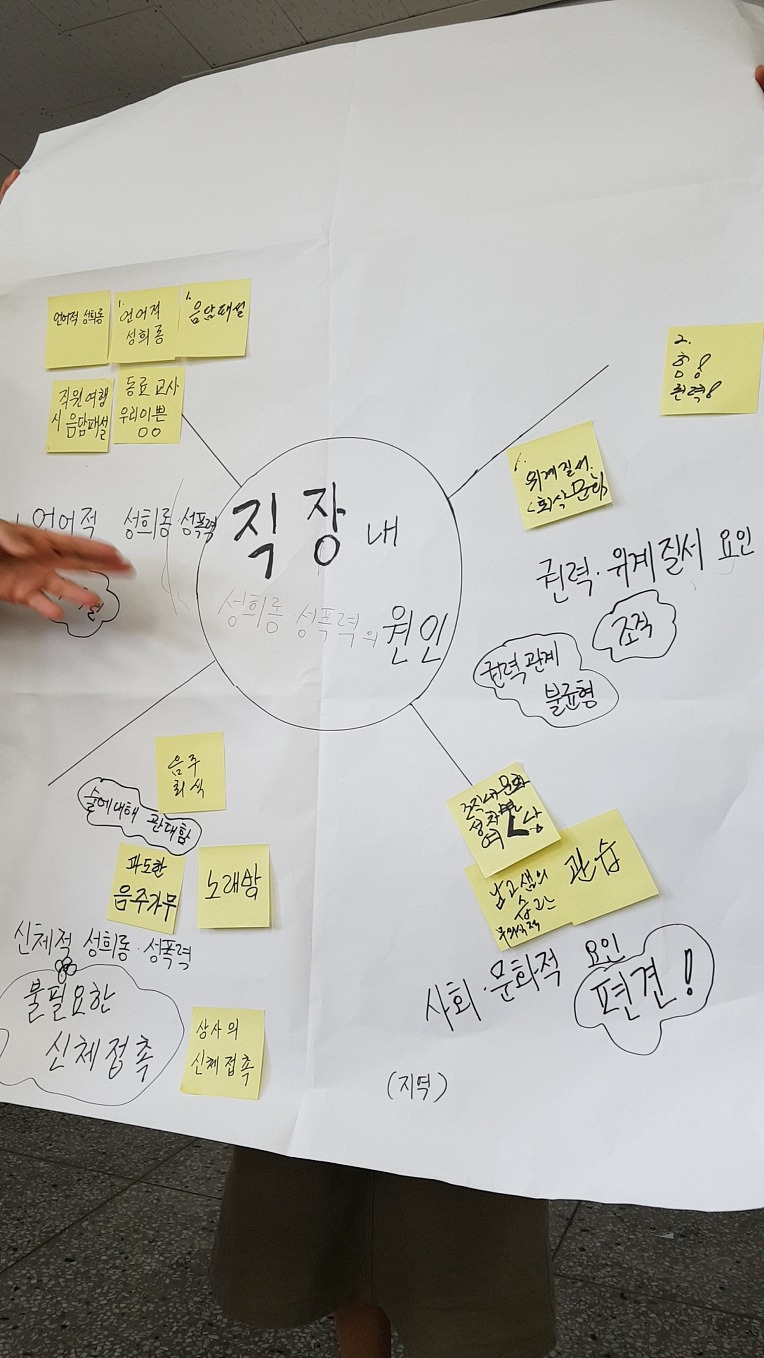 언어적 성희롱
1.
언어적
성희롱
1.
음담패설
직원여행
시 음담패설
동료 교사
우리이쁜
○○
언어적 성희롱·성폭력
직장 내
성희롱·성폭력의 원인
2.
권력
위계질서.
<회식문화
권력·위계질서 요인
조직
권력관계
불균형
음주
회식
술에대해 관대함
과도한
음주가무
노래방
신체적 성희롱·성폭력
불필요한
신체접촉
상사의
신체접촉
습관
무의식적
관습
사회·문화적 요인
편견!
(지역)